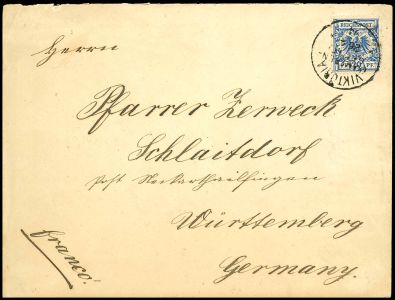 REICHSPOST
VIKTORIA
Herrn
Pfarrer Zerweck
Schlaitdorf
Post Neckarthailfingen
Württemberg
Germany.
franco.